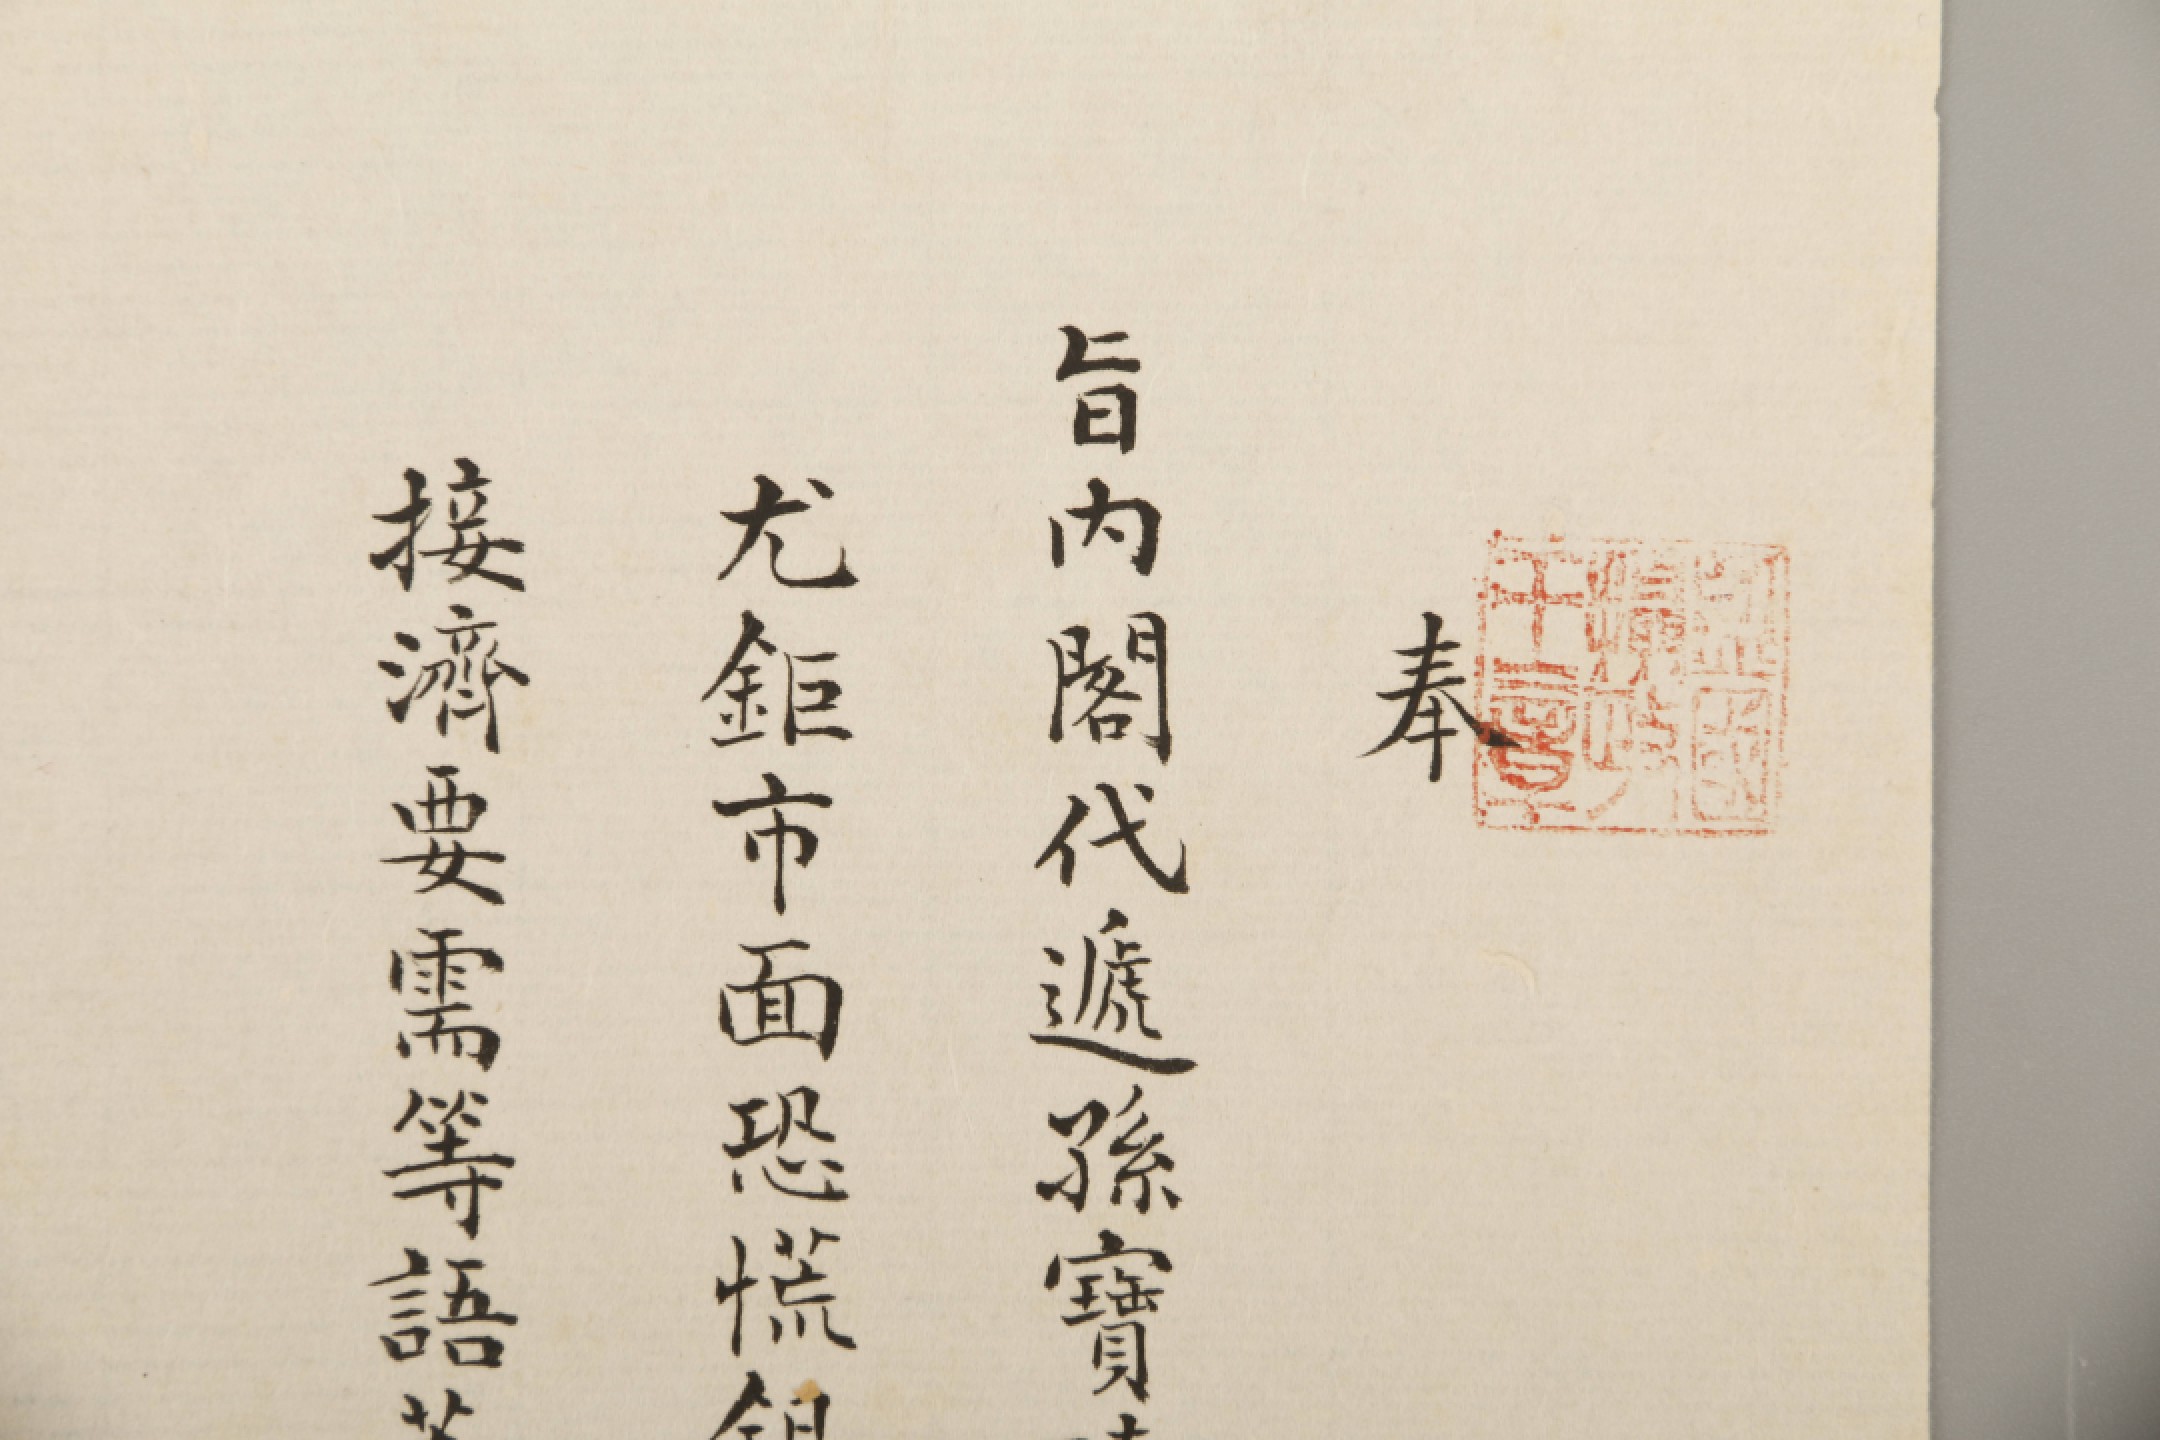 奉
旨内閣代遞孫寶
尤鉅市面恐慌銀
接濟要需等語着